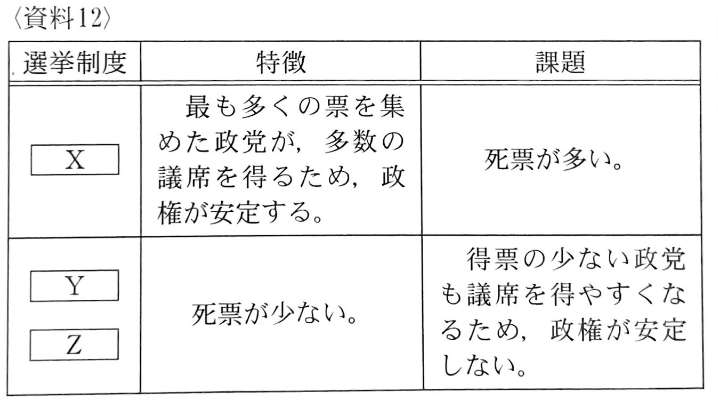 〈資料12〉
選挙制度
特徴
課題
X
最も多くの票を集
めた政党が，多数の
議席を得るため，政
権が安定する。
死票が多い。
Y
Z
死票が少ない。
得票の少ない政党
も議席を得やすくな
るため，政権が安定
しない。